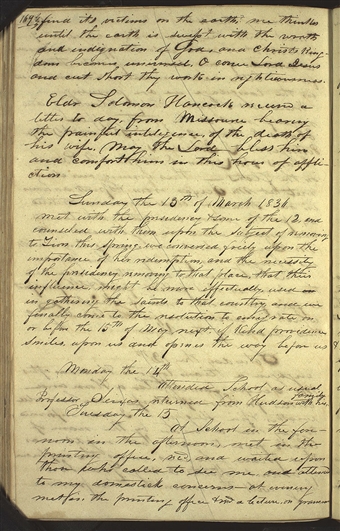 find its victims on the earth, me thinks
until the earth is swept with the wrath
and indignation of God, and Christs King-
dom becomes universal. O come Lord Jesus
and cut short thy work in righteousness.
Eldr Solomon Hancock received a
letter to day, from Missourie bearing
the painful inteligence, of the death of
his wife. May the Lord bless him
and comfort him in this hour of afflic-
tion
Sunday the 13th of March 1836
met with the presidency & some of the 12 and
counseled with them upon the subject of removing
to Zion this spring, we conversed freely upon the
importance of her redemption, and the necessity
of the presidency removing to that place, that their
influence might be more effectually, used in
in gathering the saints to that country, and we
finally come to the resolution to emigrate on
or before the 15th of May next, if kind providence
smiles upon us and opens the way before us
Monday the 14th
Attended School as usual
Professor Seixas returned from Hudson with his
family
Tuesday the 15
At School in the fore-
noon in the afternoon, met in the
printing office, &c. and waited upon
those who called to see me and attend
to my domestick concerns at evening
met in the printing office &
a lecture, on grammar